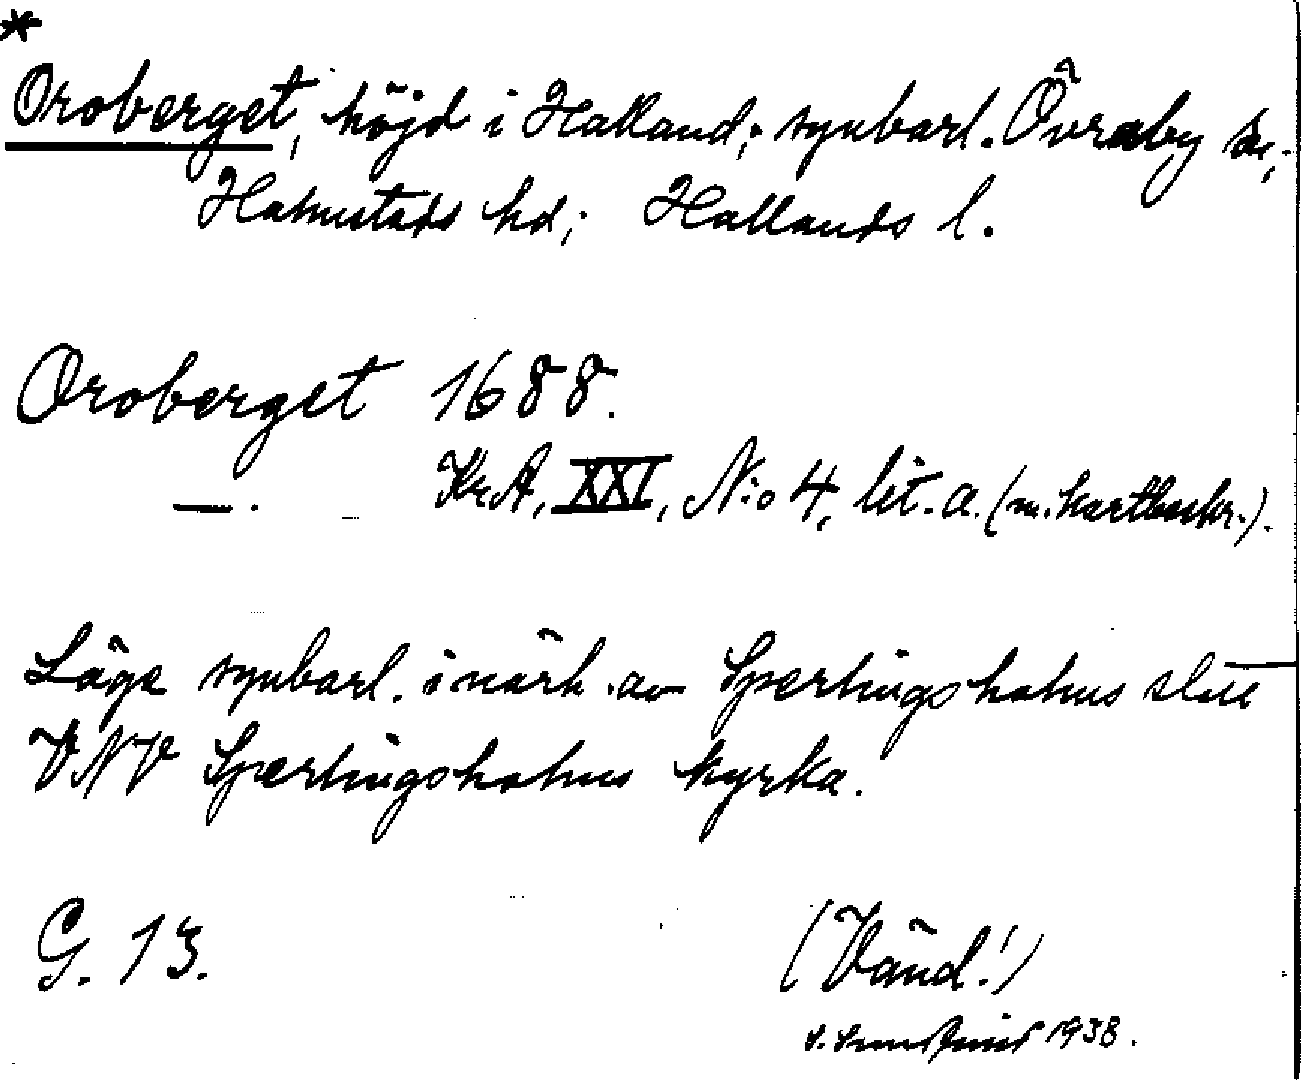 *
Oroberget, höjd i Halland; synbarl. Övraby sn,
Halmstads hd; Hallands l.
Oroberget 1688.
—. KrA, XXI, N:o 4, lit. a. (m. kartbeskr.).
Läge synbarl. i närh. av Sperlingsholms slott
VNV Sperlingsholms kyrka.
G. 13.
(Vänd!)
1938.